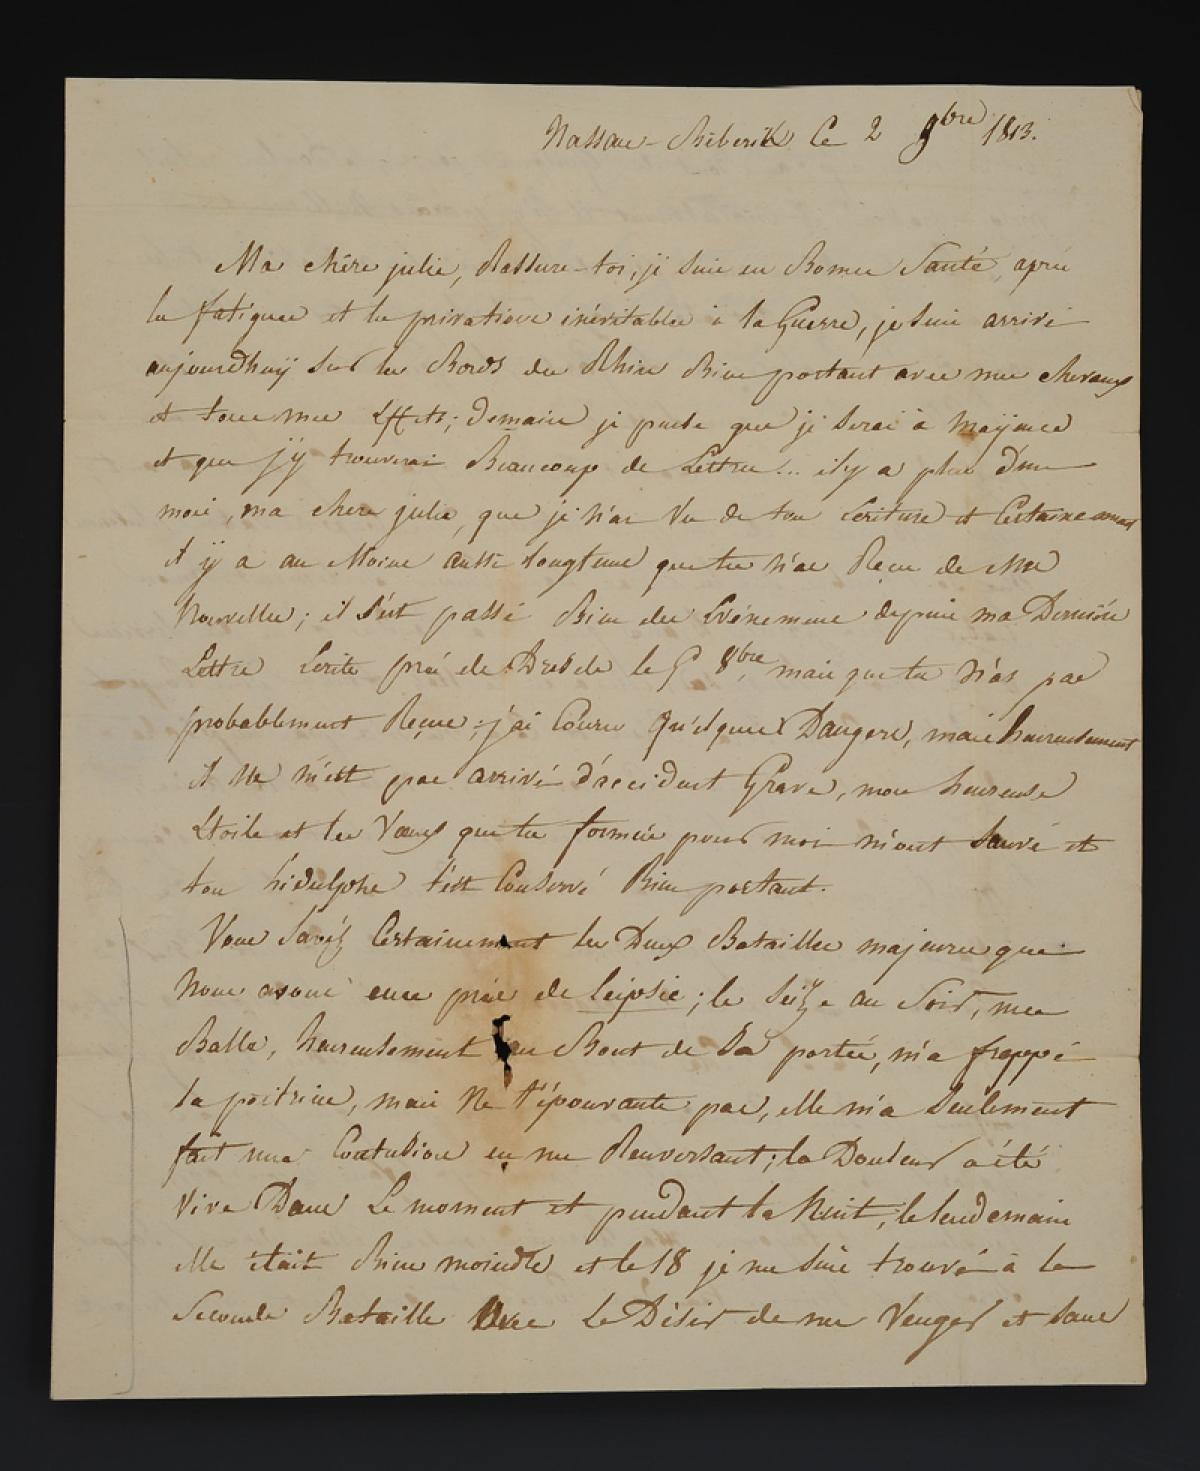 Nassau-Biberik Ce 2 9bre 1813.
Ma chére julie, Rassure-toi, jë suis en Bonne Santé, aprés
les fatigues et les privations inévitables à la Guerre, je suis arrivé
aujourdhuÿ Sur les Bords du Rhin Bien portant avec mes chevaux
et tous mes Effets; demain je pense que je serai à Maÿence
et que j'ÿ trouverai Beaucoup de Lettres... il y a plus d'un
mois, ma chere julie, que je n'ai Vu de ton Ecriture et Certainement
il ÿ a au Moins aussi Longtems que tu n'as Reçu de Mes
Nouvelles; il s'est passé Bien des Evénemens depuis ma Derniére
Lettre Ecrite prés de Dresde le 5 8bre, mais que tu n'as pas
probablement Reçue; j'ai Couru Quelques Dangers, mais heureusement
il ne m'est pas arrivé d'accident Grave, mon heureuse
Etoile et les Vœux que tu formais pour moi m'ont sauvé et
ton hidulphe t'est Conservé Bien portant.
Vous Savéz Certainement les Deux Batailles majeures que
Nous avons eues prés de Leipsic; le Seize au Soir, une
Balle, heureusement au Bout de Sa portée, m'a frappé
la poitrine, mais Ne t'épouvante pas, elle m'a Seulement
fait une Contusion en me Renversant; la Douleur a été
Vive Dans Le moment et pendant la Nuit, le lendemain
elle était Bien moindre et le 18 je me suis trouvé à la
Seconde Bataille Avec Le Désir de me Venger et sans